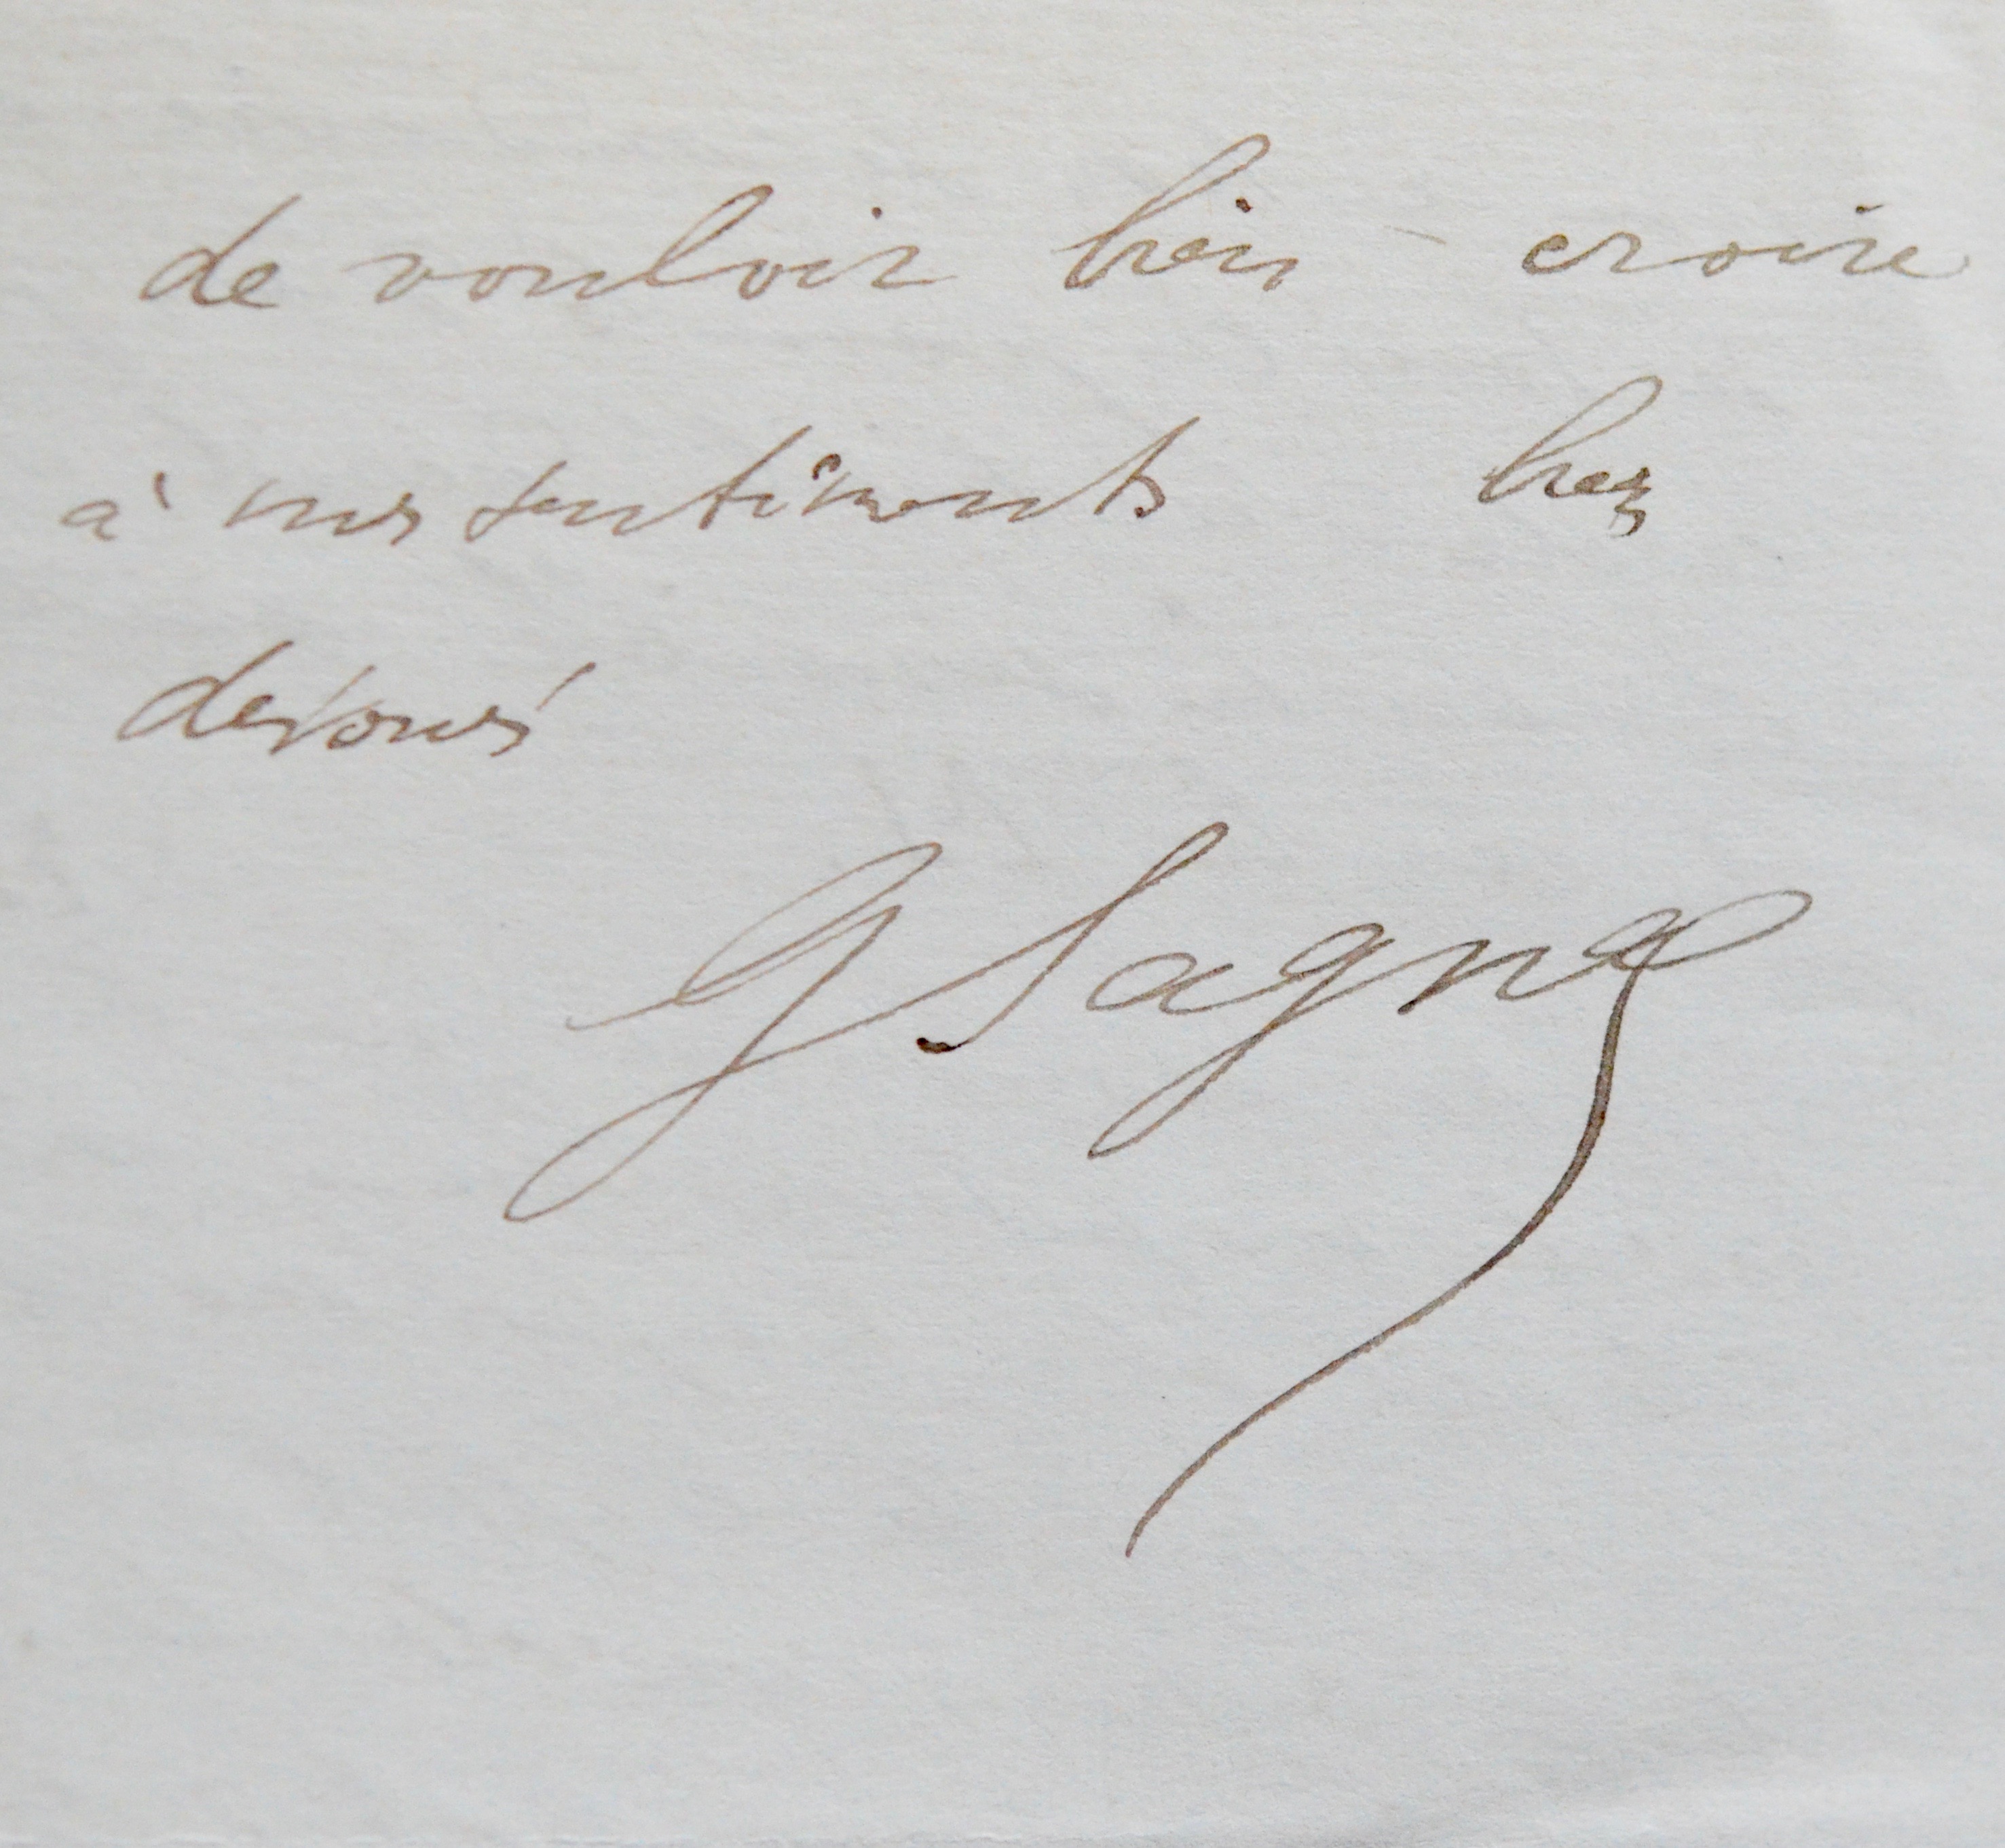 de vouloir bien croire
à mes sentiments bien
dévoués
G Sagne